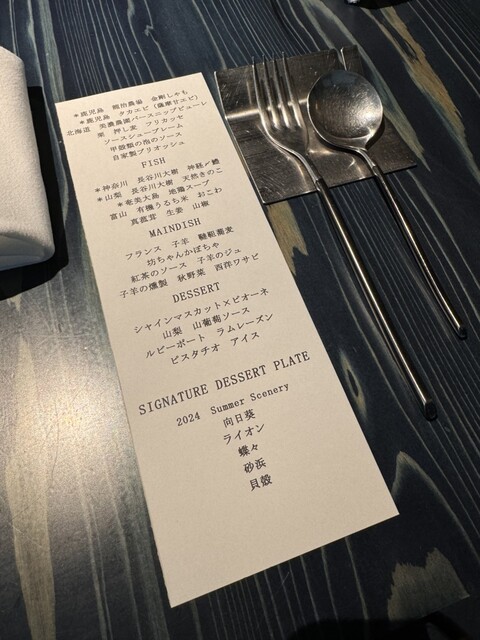 ＊鹿児島　鵜防農場　金剛しゃも
＊鹿児島　タカエビ（薩摩甘エビ）
北海道　美濃農園パースニップピューレ
栗　押し麦　フリカッセ
ソースシュープレーム
甲殻類の泡のソース
自家製ブリオッシュ
FISH
＊神奈川　長谷川大樹　神経〆鱧
＊山梨　長谷川大樹　天然きのこ
＊奄美大島　地鶏スープ
富山　有機うるち米　おこわ
真菰茸　生姜　山椒
MAINDISH
フランス　子羊　韃靼蕎麦
坊ちゃんかぼちゃ
紅茶のソース　子羊のジュ
子羊の燻製　秋野菜　西洋ワサビ
DESSERT
シャインマスカット×ピオーネ
山梨　山葡萄ソース
ルビーポート　ラムレーズン
ピスタチオ　アイス
SIGNATURE DESSERT PLATE
2024　Summer Scenery
向日葵
ライオン
蝶々
砂浜
貝殻